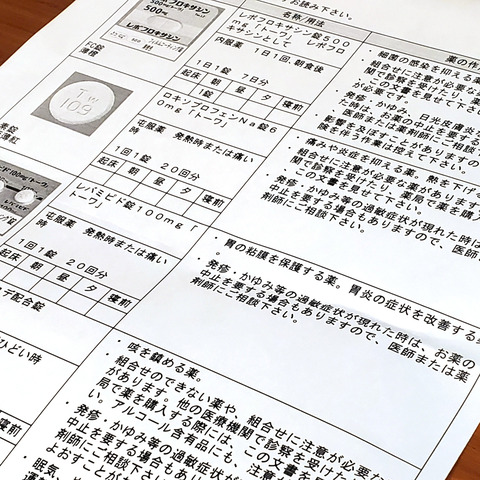 お読み下さい。
名称/用法
薬の作
500mg(トーワ)
500mg
レボフロキサシン
FC錠
レボフロキサシン錠500
mg「トーワ」 レボフロ
キサシンとして
内服薬 1日1回、朝食後
1日1錠 7日分
起床 朝 昼 夕 寝前
・細菌の感染を抑える薬
組合せに注意が必要な
関で診察を受けたり、
、この文書を見せて下さ
が必要です。
・発疹、かゆみ、日光皮膚炎
た時は、お薬の中止を要する
医師または薬剤師にご相談
影響を及ぼすことがありますの
険を伴う作業は控えて下さい。
Tw
109
ロキソプロフェンNa錠6
0mg「トーワ」
屯服薬 発熱時または痛い
時
1回1錠 20回分
起床 朝 昼 夕 寝前
・痛みや炎症を抑える薬。熱を下げ
・組合せに注意が必要な薬があります
関で診察を受けたり、薬局で薬を購入
、この文書を見せて下さい。
・発疹・かゆみ等の過敏症状が現れた時は
中止を要する場合もありますので、医師
剤師にご相談下さい。
レバミピド錠100mg「
トーワ」
屯服薬 発熱時または痛い
時
1回1錠 20回分
起床 朝 昼 夕 寝前
・胃の粘膜を保護する薬。胃炎の症状を改善する
・発疹・かゆみ等の過敏症状が現れた時は、お薬の
中止を要する場合もありますので、医師または薬
剤師にご相談下さい。
配合錠
ひどい時
寝前
・咳を鎮める薬。
・組合せのできない薬や、組合せに注意が必要な
があります。他の医療機関で診察を受けた
局で薬を購入する際には、この文書を見せ
。アルコール含有品にも、注意
・発疹・かゆみ等の過敏症状が
中止を要する場合もあり
剤師にご相談下さい
・眠気、
よおすことが